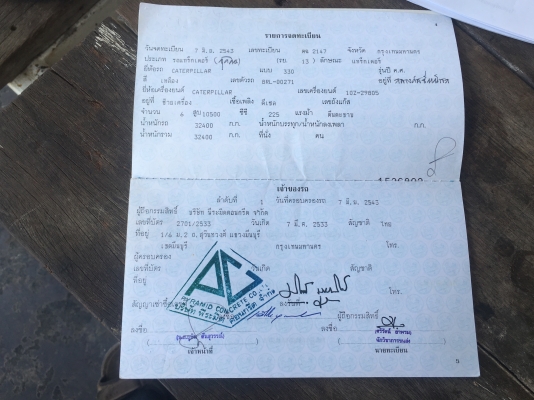 รายการจดทะเบียน
วันจดทะเบียน 7 มิ.ย. 2543 เลขทะเบียน ตค 2147 จังหวัด กรุงเทพมหานคร
ประเภท รถแทร็กเตอร์ (รย 13) ลักษณะ แทร็กเตอร์
ยี่ห้อรถ CATERPILLAR แบบ 330 รุ่นปี ค.ศ.
สี เหลือง เลขตัวรถ 8RL-00271 อยู่ที่
ยี่ห้อเครื่องยนต์ CATERPILLAR เลขเครื่องยนต์ 10Z-29805
อยู่ที่ ข้างเครื่อง เชื้อเพลิง ดีเซล เลขถังแก๊ส
จำนวน 6 สูบ 10500 ซีซี 225 แรงม้า
น้ำหนักรถ 32400 ก.ก. น้ำหนักบรรทุก/น้ำหนักลงเพลา ก.ก.
น้ำหนักรวม 32400 ก.ก. ที่นั่ง คน
เจ้าของรถ
ลำดับที่ 1 วันที่ครอบครองรถ 7 มิ.ย. 2543
ผู้ถือกรรมสิทธิ์ บริษัท พีระมิดคอนกรีต จำกัด
เลขที่บัตร 2701/2533 วันเกิด 7 มี.ค. 2533 สัญชาติ ไทย
ที่อยู่ 1/6 ม.2 ถ.สุวินทวงศ์ แขวงมีนบุรี
เขตมีนบุรี กรุงเทพมหานคร โทร.
ผู้ครอบครอง
เลขที่บัตร วันเกิด สัญชาติ
ที่อยู่ โทร.
PYRAMID CONCRETE CO.
บริษัท พีระมิดคอนกรีต จำกัด
สัญญาเช่าซื้อ ลงวันที่ ผู้ถือกรรมสิทธิ์
ลงชื่อ ลงชื่อ
เจ้าหน้าที่ นายทะเบียน
5